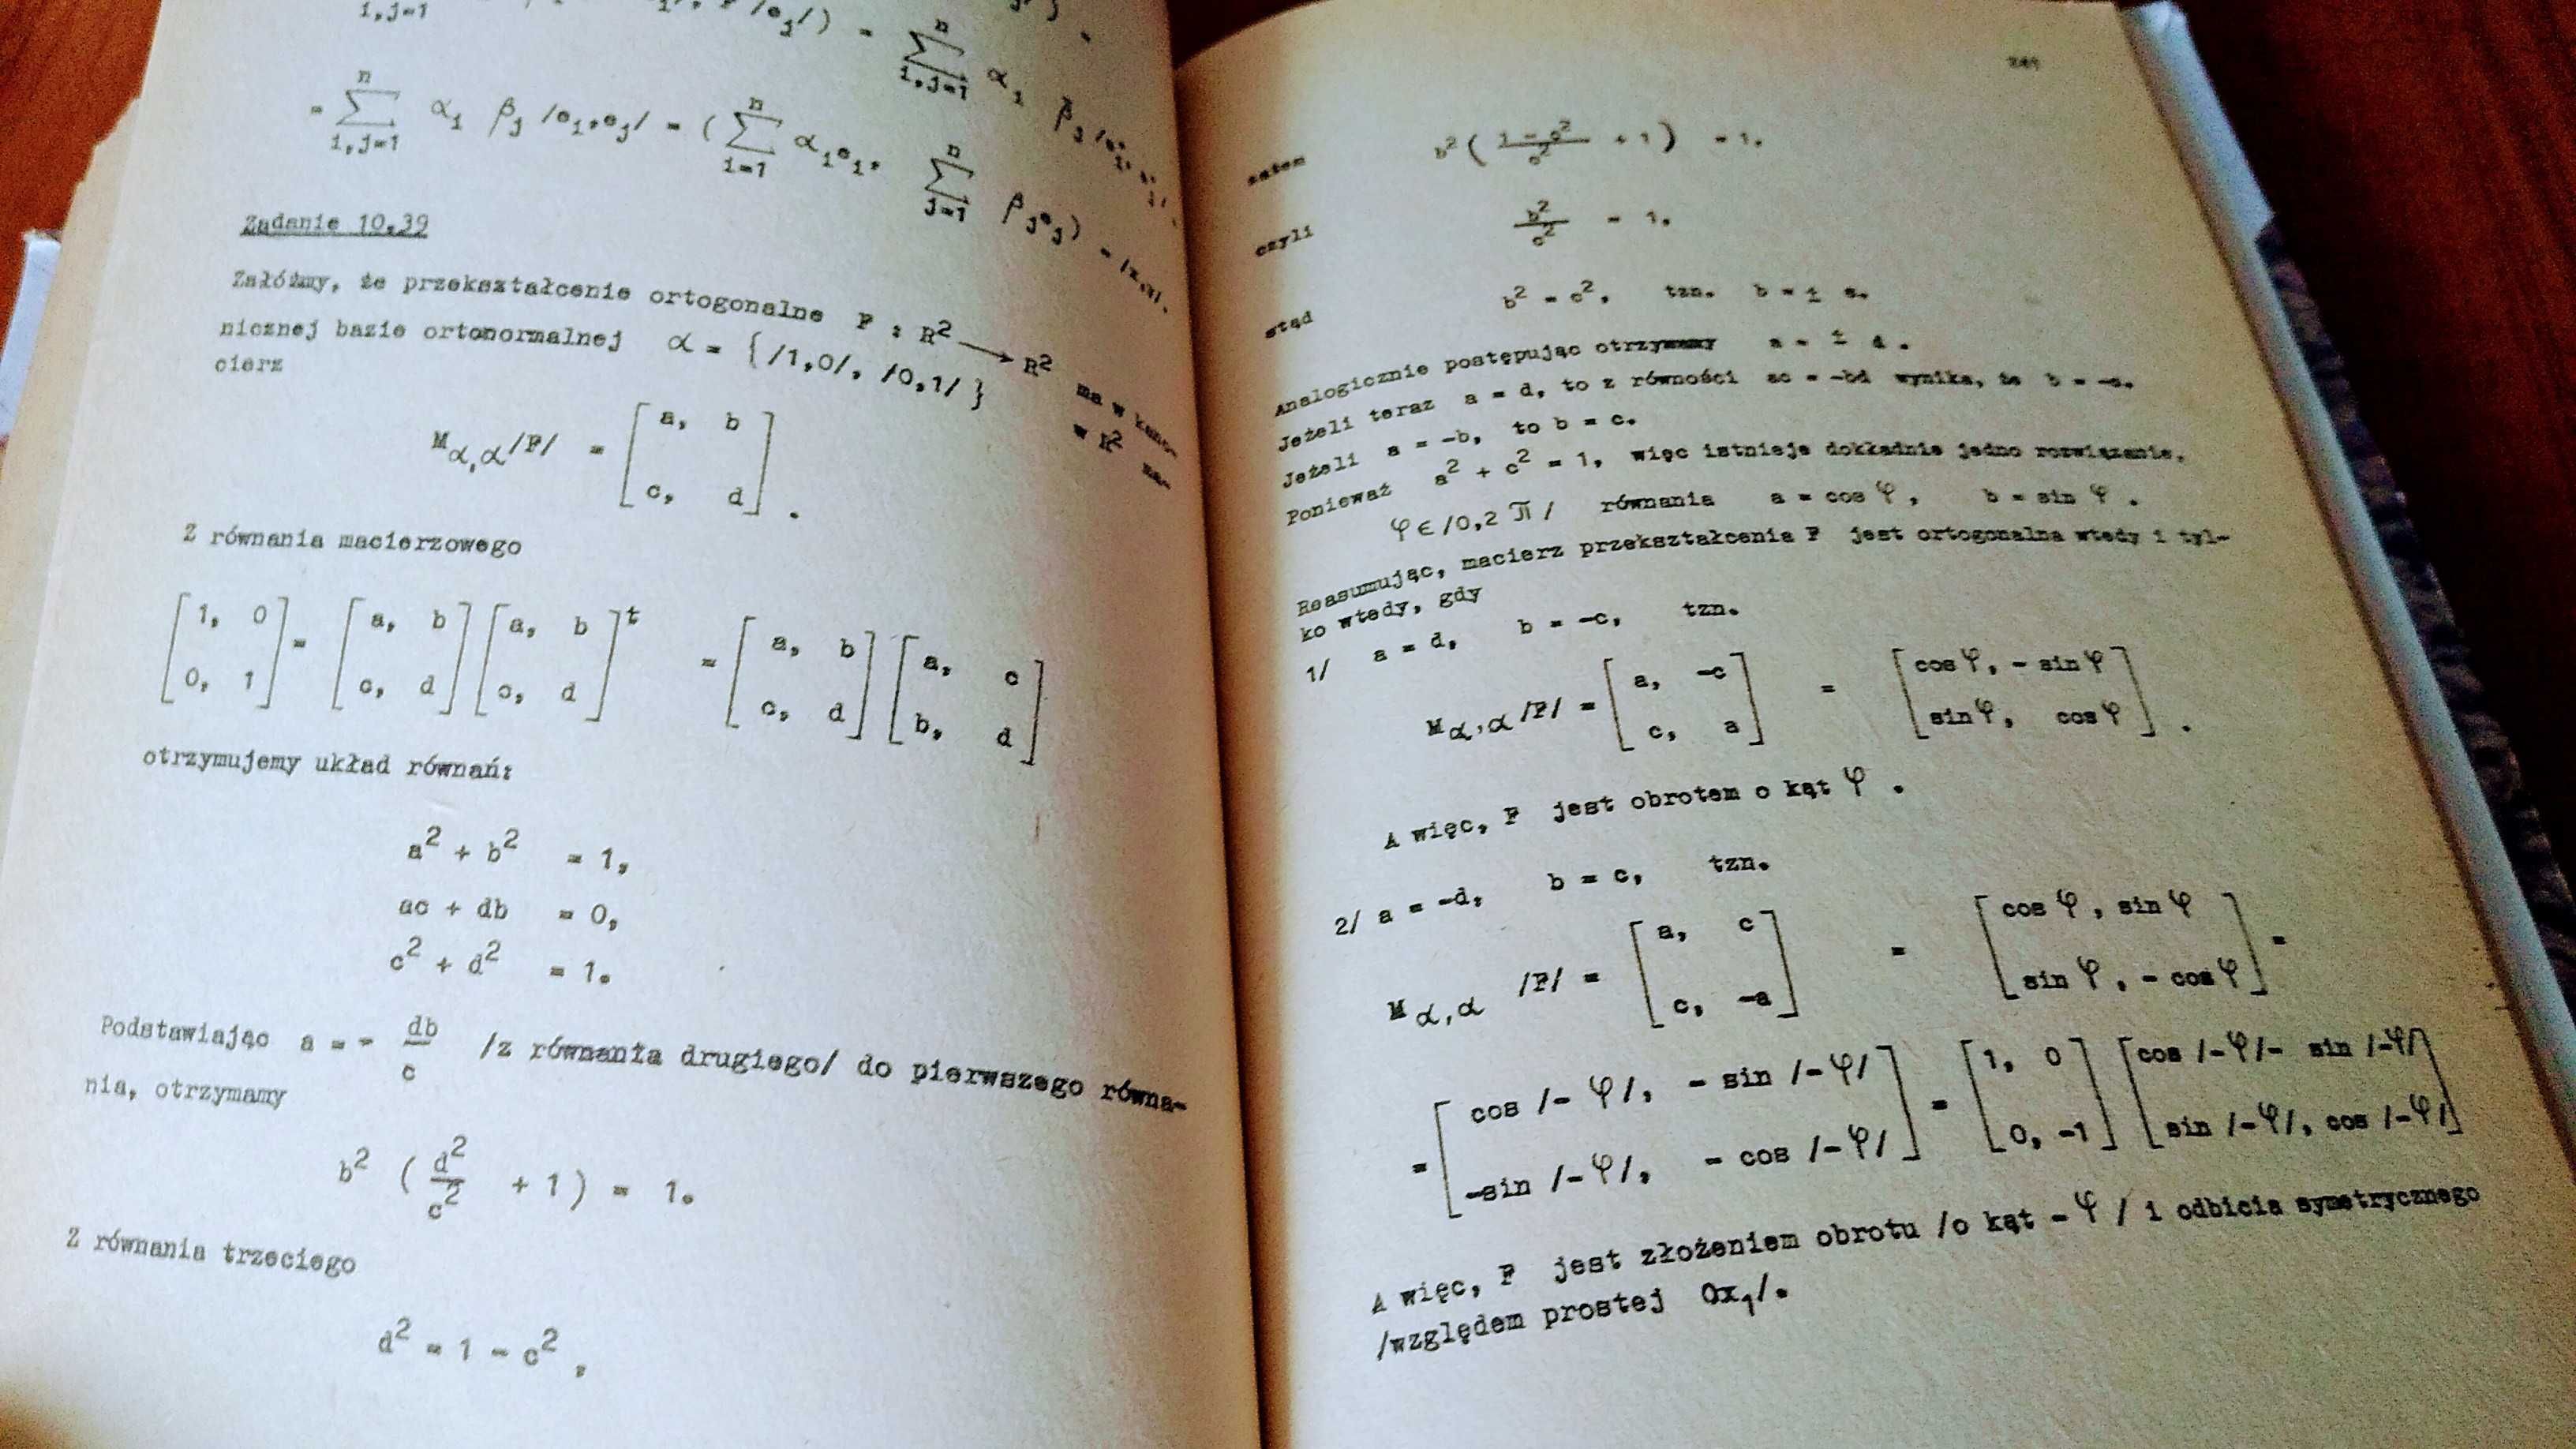 i,j=1
= n∑i,j=1 αi βj /ei,ej/ = ( n∑i=1 αiei, n∑j=1 βjej) = /x,y/.
Zadanie 10.39
Załóżmy, że przekształcenie ortogonalne F : R² ⟶ R² ma w kano-
nicznej bazie ortonormalnej α = { /1,0/, /0,1/ } w R² ma-
cierz
Mα,α/F/ = [ a, b
c, d ] .
Z równania macierzowego
[ 1, 0 ] = [ a, b ] [ a, b ]t = [ a, b ] [ a, c ]
[ 0, 1 ] [ c, d ] [ c, d ] [ c, d ] [ b, d ]
otrzymujemy układ równań:
a² + b² = 1,
ac + db = 0,
c² + d² = 1.
Podstawiając a = - db/c /z równania drugiego/ do pierwszego równa-
nia, otrzymamy
b² ( d²/c² + 1 ) = 1.
Z równania trzeciego
d² = 1 - c² ,
241
zatem b² ( 1 - c²/c² + 1 ) = 1.
czyli b²/c² = 1.
stąd b² = c², tzn. b = ± c.
Analogicznie postępując otrzymamy a = ± d .
Jeżeli teraz a = d, to z równości ac = -bd wynika, że b = -c.
Jeżeli a = -b, to b = c.
Ponieważ a² + c² = 1, więc istnieje dokładnie jedno rozwiązanie,
φ ∈ /0,2 π / równania a = cos φ , b = sin φ .
Reasumując, macierz przekształcenia F jest ortogonalna wtedy i tyl-
ko wtedy, gdy
1/ a = d, b = -c, tzn.
Mα,α /F/ = [ a, -c ] = [ cos φ, - sin φ ]
[ c, a ] [ sin φ, cos φ ] .
A więc, F jest obrotem o kąt φ .
2/ a = -d, b = c, tzn.
Mα,α /F/ = [ a, c ] = [ cos φ , sin φ ] =
[ c, -a ] [ sin φ , - cos φ ]
= [ cos /- φ/, - sin /-φ/ ] = [ 1, 0 ] [ cos /-φ/- sin /-φ/ ]
[ -sin /-φ/, - cos /-φ/ ] [ 0, -1 ] [ sin /-φ/, cos /-φ/ ]
A więc, F jest złożeniem obrotu /o kąt - φ / i odbicia symetrycznego
/względem prostej Ox₁/.